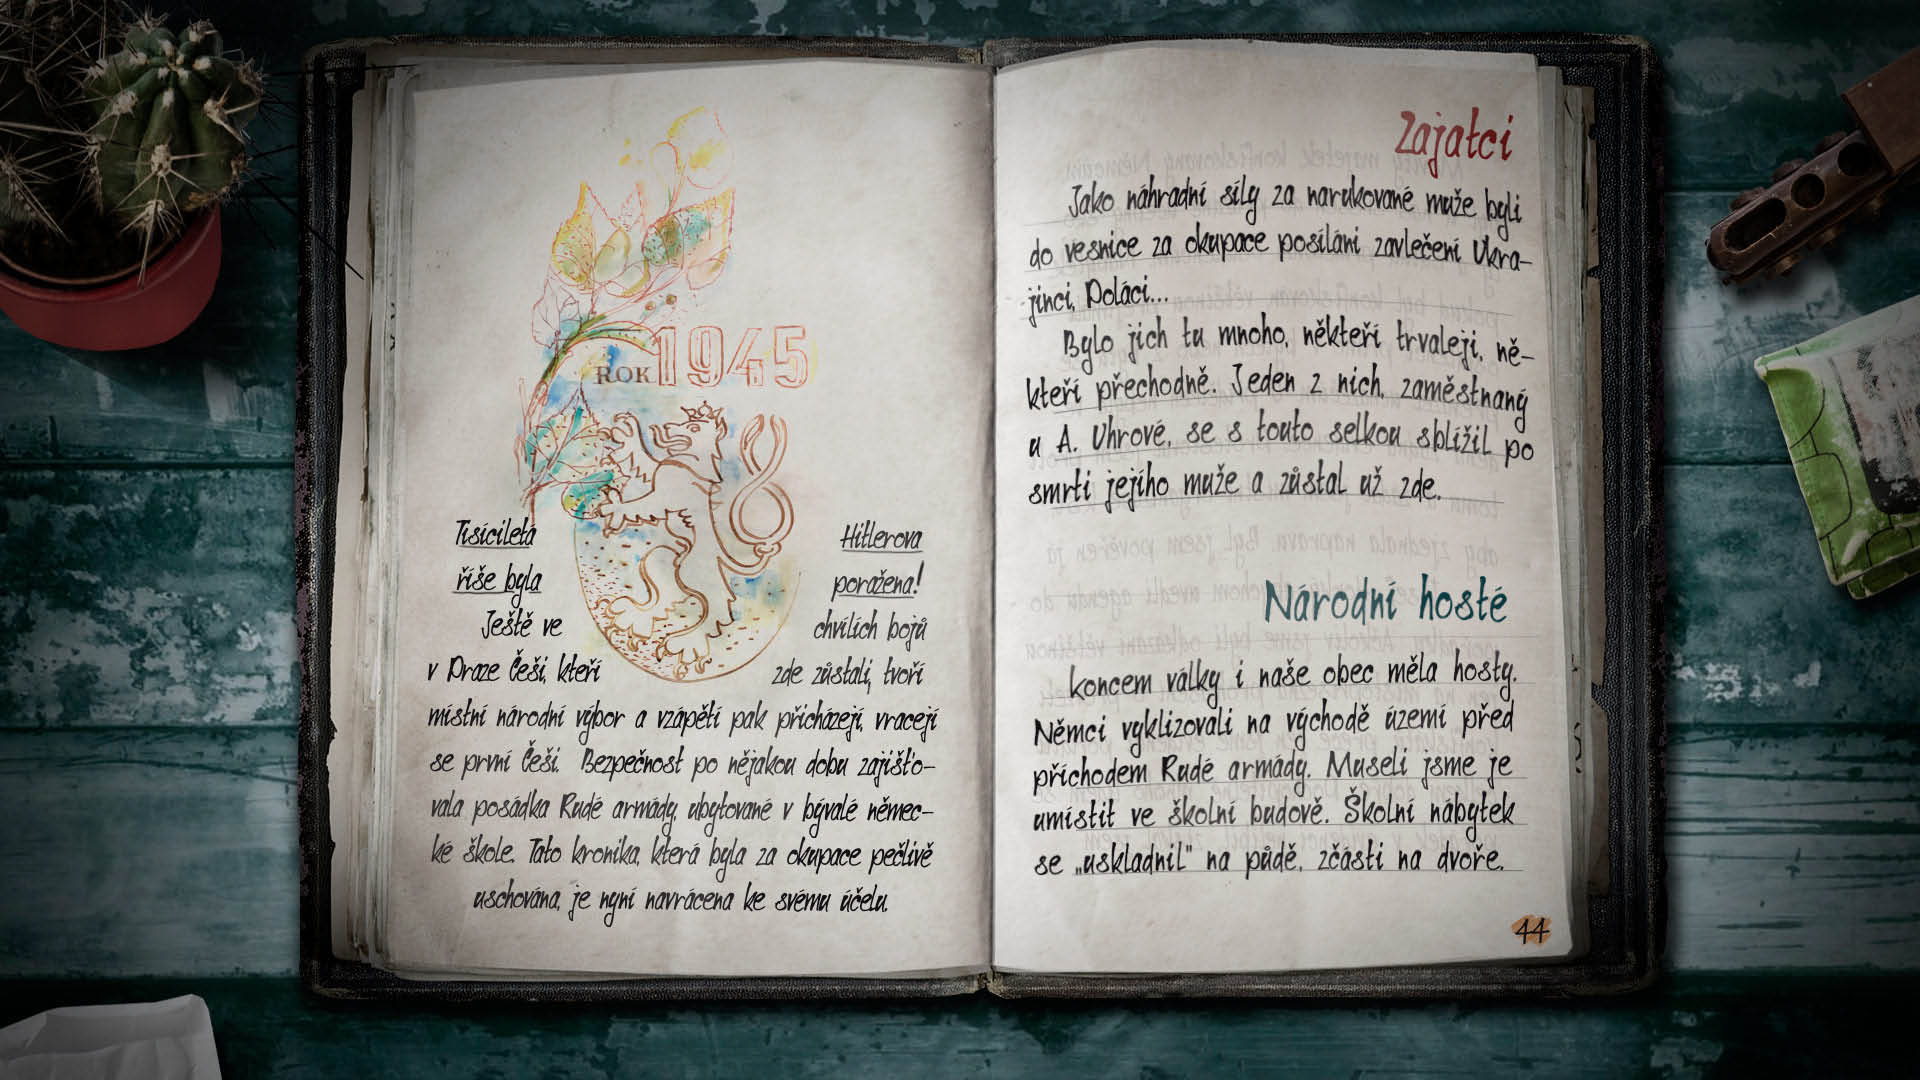 ROK 1945
Tisíciletá Hitlerova
říše byla poražena!
Ještě ve chvílích bojů
v Praze Češi, kteří zde zůstali, tvoří
místní národní výbor a vzápětí pak přicházejí, vracejí
se první Češi. Bezpečnost po nějakou dobu zajišťo-
vala posádka Rudé armády, ubytované v bývalé němec-
ké škole. Tato kronika, která byla za okupace pečlivě
uschována, je nyní navrácena ke svému účelu.
Zajatci
Jako náhradní síly za narukované muže byli
do vesnice za okupace posíláni zavlečení Ukra-
jinci, Poláci...
Bylo jich tu mnoho, někteří trvaleji, ně-
kteří přechodně. Jeden z nich, zaměstnaný
u A. Uhrové, se s touto selkou sblížil po
smrti jejího muže a zůstal už zde.
Národní hosté
Koncem války i naše obec měla hosty.
Němci vyklizovali na východě území před
příchodem Rudé armády. Museli jsme je
umístit ve školní budově. Školní nábytek
se „uskladnil" na půdě, zčásti na dvoře.
44